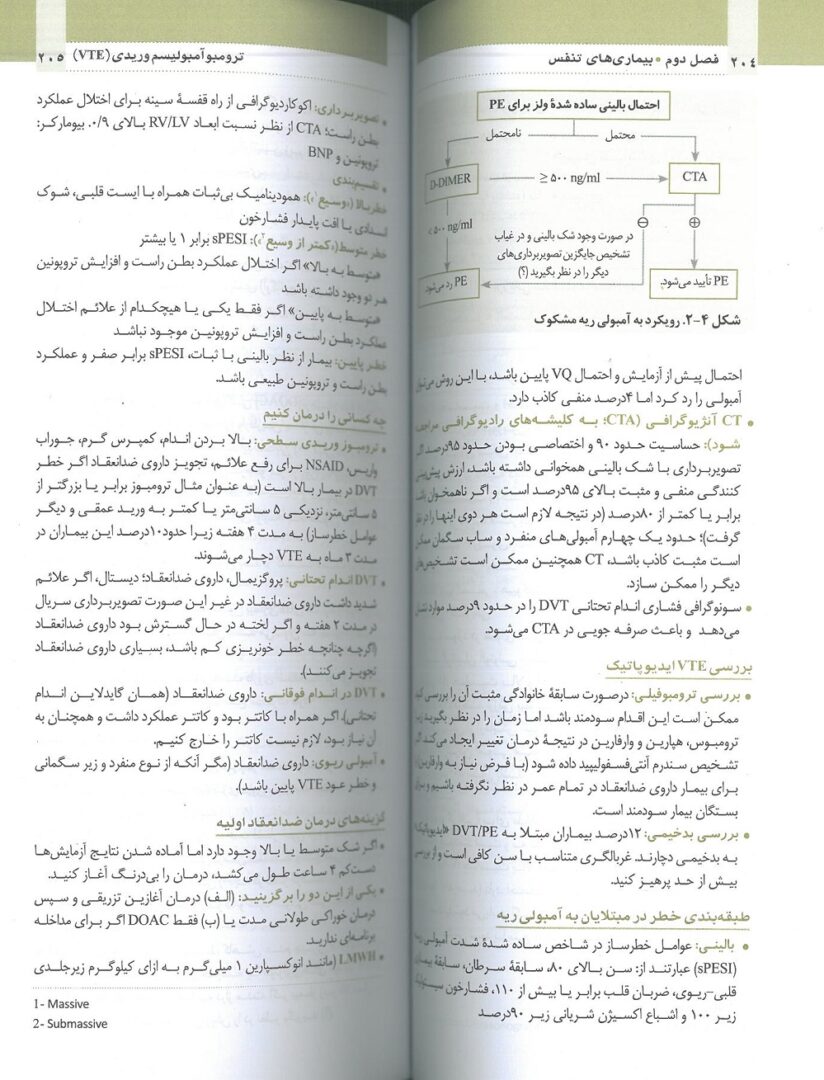 ۲۰۴ فصل دوم • بیماری‌های تنفس
احتمال بالینی ساده شدهٔ ولز برای PE
محتمل
نامحتمل
CTA
≥ ۵۰۰ ng/ml
D-DIMER
< ۵۰۰ ng/ml
⊕
⊖
در صورت وجود شک بالینی و در غیاب
تشخیص جایگزین تصویربرداری‌های
دیگر را در نظر بگیرید (؟)
PE تأیید می‌شود.
PE رد می‌شود
شکل ۴-۲. رویکرد به آمبولی ریه مشکوک
احتمال پیش از آزمایش و احتمال VQ پایین باشد، با این روش می‌توان
آمبولی را رد کرد اما ۴درصد منفی کاذب دارد.
• CT آنژیوگرافی (CTA؛ به کلیشه‌های رادیوگرافی مراجعه
شود): حساسیت حدود ۹۰ و اختصاصی بودن حدود ۹۵درصد اگر
تصویربرداری با شک بالینی همخوانی داشته باشد، ارزش پیش‌بینی
کنندگی منفی و مثبت بالای ۹۵درصد است و اگر ناهمخوان باشد
برابر یا کمتر از ۸۰درصد (در نتیجه لازم است هر دوی اینها را در نظر
گرفت)؛ حدود یک چهارم آمبولی‌های منفرد و ساب سگمان ممکن
است مثبت کاذب باشد، CT همچنین ممکن است تشخیص‌های
دیگر را ممکن سازد.
• سونوگرافی فشاری اندام تحتانی DVT را در حدود ۹درصد موارد نشان
می‌دهد و باعث صرفه جویی در CTA می‌شود.
بررسی VTE ایدیوپاتیک
• بررسی ترومبوفیلی: درصورت سابقهٔ خانوادگی مثبت آن را بررسی کنید
ممکن است این اقدام سودمند باشد اما زمان را در نظر بگیرید زیرا
ترومبوس، هپارین و وارفارین در نتیجهٔ درمان تغییر ایجاد می‌کند اگر
تشخیص سندرم آنتی‌فسفولیپید داده شود (با فرض نیاز به وارفارین)
برای بیمار داروی ضدانعقاد در تمام عمر در نظر نگرفته باشیم و برای
بستگان بیمار سودمند است.
• بررسی بدخیمی: ۱۲درصد بیماران مبتلا به DVT/PE «ایدیوپاتیک»
به بدخیمی دچارند. غربالگری متناسب با سن کافی است و از بررسی
بیش از حد پرهیز کنید.
طبقه‌بندی خطر در مبتلایان به آمبولی ریه
• بالینی: عوامل خطرساز در شاخص ساده شدهٔ شدت آمبولی ریه
(sPESI) عبارتند از: سن بالای ۸۰، سابقهٔ سرطان، سابقهٔ بیماری
قلبی-ریوی، ضربان قلب برابر یا بیش از ۱۱۰، فشارخون سیستولیک
زیر ۱۰۰ و اشباع اکسیژن شریانی زیر ۹۰درصد
ترومبوآمبولیسم وریدی (VTE) ۲۰۵
• تصویربرداری: اکوکاردیوگرافی از راه قفسهٔ سینه برای اختلال عملکرد
بطن راست؛ CTA از نظر نسبت ابعاد RV/LV بالای ۰/۹. بیومارکر:
تروپونین و BNP
• تقسیم‌بندی
خطر بالا («وسیع¹»): همودینامیک بی‌ثبات همراه با ایست قلبی، شوک
انسدادی یا افت پایدار فشارخون
خطر متوسط («کمتر از وسیع²»): sPESI برابر ۱ یا بیشتر
«متوسط به بالا» اگر اختلال عملکرد بطن راست و افزایش تروپونین
هر دو وجود داشته باشد
«متوسط به پایین» اگر فقط یکی یا هیچکدام از علائم اختلال
عملکرد بطن راست و افزایش تروپونین موجود نباشد
خطر پایین: بیمار از نظر بالینی با ثبات، sPESI برابر صفر و عملکرد
بطن راست و تروپونین طبیعی باشد.
چه کسانی را درمان کنیم
• ترومبوز وریدی سطحی: بالا بردن اندام، کمپرس گرم، جوراب
واریس، NSAID برای رفع علائم، تجویز داروی ضدانعقاد اگر خطر
DVT در بیمار بالا است (به عنوان مثال ترومبوز برابر یا بزرگتر از
۵ سانتی‌متر، نزدیکی ۵ سانتی‌متر یا کمتر به ورید عمقی و دیگر
عوامل خطرساز) به مدت ۴ هفته زیرا حدود۱۰درصد این بیماران در
مدت ۳ ماه به VTE دچار می‌شوند.
• DVT اندام تحتانی: پروگزیمال، داروی ضدانعقاد؛ دیستال، اگر علائم
شدید داشت داروی ضدانعقاد در غیر این صورت تصویربرداری سریال
در مدت ۲ هفته و اگر لخته در حال گسترش بود داروی ضدانعقاد
(اگرچه چنانچه خطر خونریزی کم باشد، بسیاری داروی ضدانعقاد
تجویز می‌کنند).
• DVT در اندام فوقانی: داروی ضدانعقاد (همان گایدلاین اندام
تحتانی). اگر همراه با کاتتر بود و کاتتر عملکرد داشت و همچنان به
آن نیاز بود، لازم نیست کاتتر را خارج کنیم.
• آمبولی ریوی: داروی ضدانعقاد (مگر آنکه از نوع منفرد و زیر سگمانی
و خطر عود VTE پایین باشد).
گزینه‌های درمان ضدانعقاد اولیه
• اگر شک متوسط یا بالا وجود دارد اما آماده شدن نتایج آزمایش‌ها
دست‌کم ۴ ساعت طول می‌کشد، درمان را بی‌درنگ آغاز کنید.
• یکی از این دو را برگزینید: (الف) درمان آغازین تزریقی و سپس
درمان خوراکی طولانی مدت یا (ب) فقط DOAC اگر برای مداخله
برنامه‌ای ندارید.
• LMWH (مانند انوکساپارین ۱ میلی‌گرم به ازای کیلوگرم زیرجلدی
1- Massive
2- Submassive